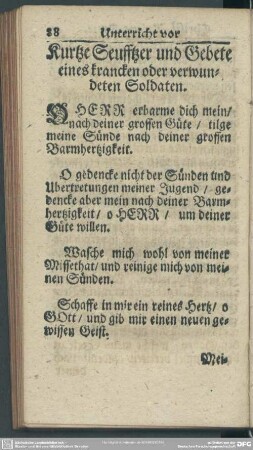 88 Unterricht vor
Kurtze Seufftzer und Gebete
eines krancken oder verwun-
deten Soldaten.
O HERR erbarme dich mein/
nach deiner grossen Güte / tilge
meine Sünde nach deiner grossen
Barmhertzigkeit.
O gedencke nicht der Sünden und
Ubertretungen meiner Jugend / ge-
dencke aber mein nach deiner Barm-
hertzigkeit / o HERR / um deiner
Güte willen.
Wasche mich wohl von meiner
Missethat / und reinige mich von mei-
nen Sünden.
Schaffe in mir ein reines Hertz / o
GOtt / und gib mir einen neuen ge-
wissen Geist.
Mei-